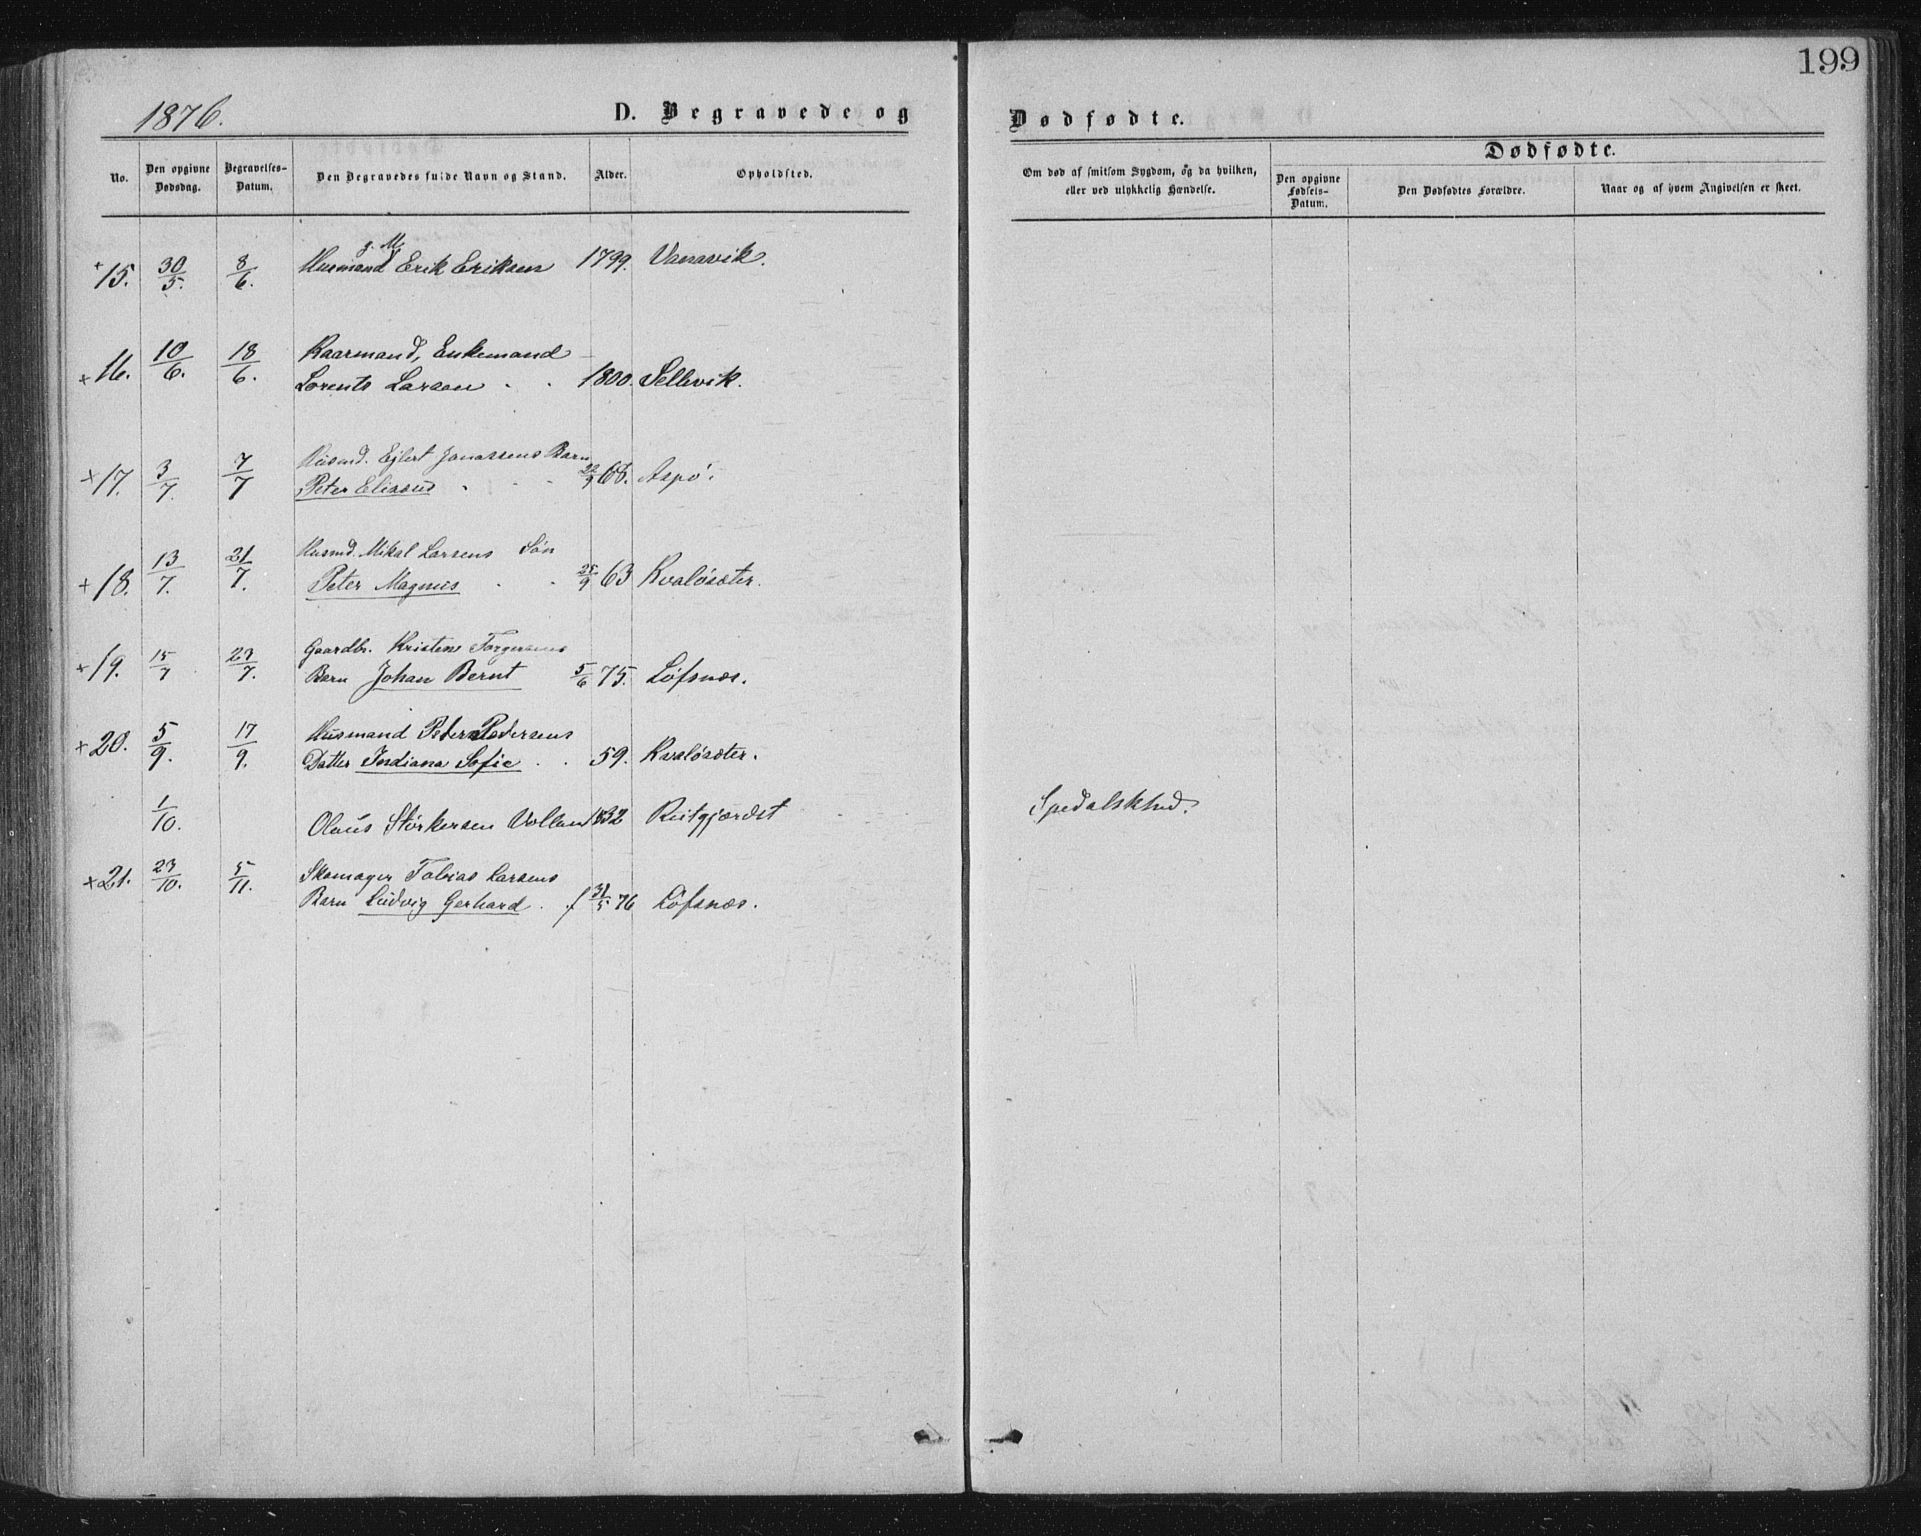 199
1876.
D. Begravede og
Dødfødte.
No.
Den opgivne Dødsdag.
Begravelses-Datum.
Den Begravedes fulde Navn og Stand.
Alder.
Opholdsted.
Om død af smitsom Sygdom, og da hvilken, eller ved ulykkelig Hændelse.
Dødfødte.
Den opgivne Fødsels-Datum.
Den Dødfødtes Forældre.
Naar og af hvem Angivelsen er skeet.
g. M.
+ 15. 30/5. 8/6. Husmand Erik Eriksen 1799. Vanavik.
Kaarmand, Enkemand
+ 16. 10/6. 18/6. Lorents Larsen . . 1800. Sellevik.
Husmd. Ejlert Jonassens Barn
+ 17. 3/7. 7/7 Peter Elisæus . . . 22/9 68. Aspø.
Husmd. Mikal Larsens Søn
+ 18. 13/7. 21/7. Peter Magnus . . 25/9 63 Kvaløsæter.
Gaardbr. Kristene Torgersens
+ 19. 15/7 23/7. Barn Johan Bernt 5/6 75. Løfsnæs.
Husmand Peter Pedersens
+ 20. 5/9. 17/9. Datter Indiana Sofie . . 59. Kvaløsæter.
1/10. Olaus Størkersen Vollan 1832 Reitgjærdet Spedalskhed.
Skomager Tobias Larsens
+ 21. 23/10. 5/11. Barn Ludvig Gerhard . f 31/5 76 Løfsnæs.